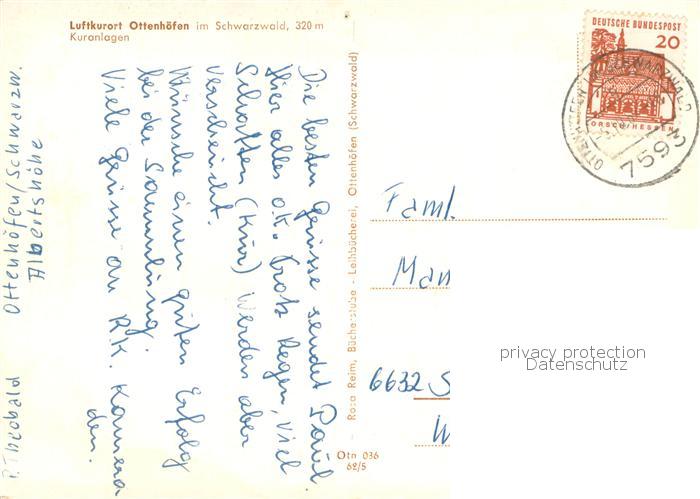 Luftkurort Ottenhöfen im Schwarzwald, 320 m
Kuranlagen
Die besten Grüsse sendet Paul.
Hier alles o.k. Trotz Regen, viel
Schatten (Kur) Werden aber
verscheucht.
Wünsche einen guten Erfolg
bei der Sammlung.
Viele Grüsse an R.K. Kamera
den.
P. Theobald
Ottenhöfen/Schwarzw.
Albertshöhe
Rosa Reim, Bücherstube - Leihbücherei, Ottenhöfen (Schwarzwald)
Otn 036
62/5
DEUTSCHE BUNDESPOST
20
LORSCH/HESSEN
OTTENHÖFEN IM SCHWARZWALD
7593
Faml.
Man
6632 S
W
privacy protection
Datenschutz